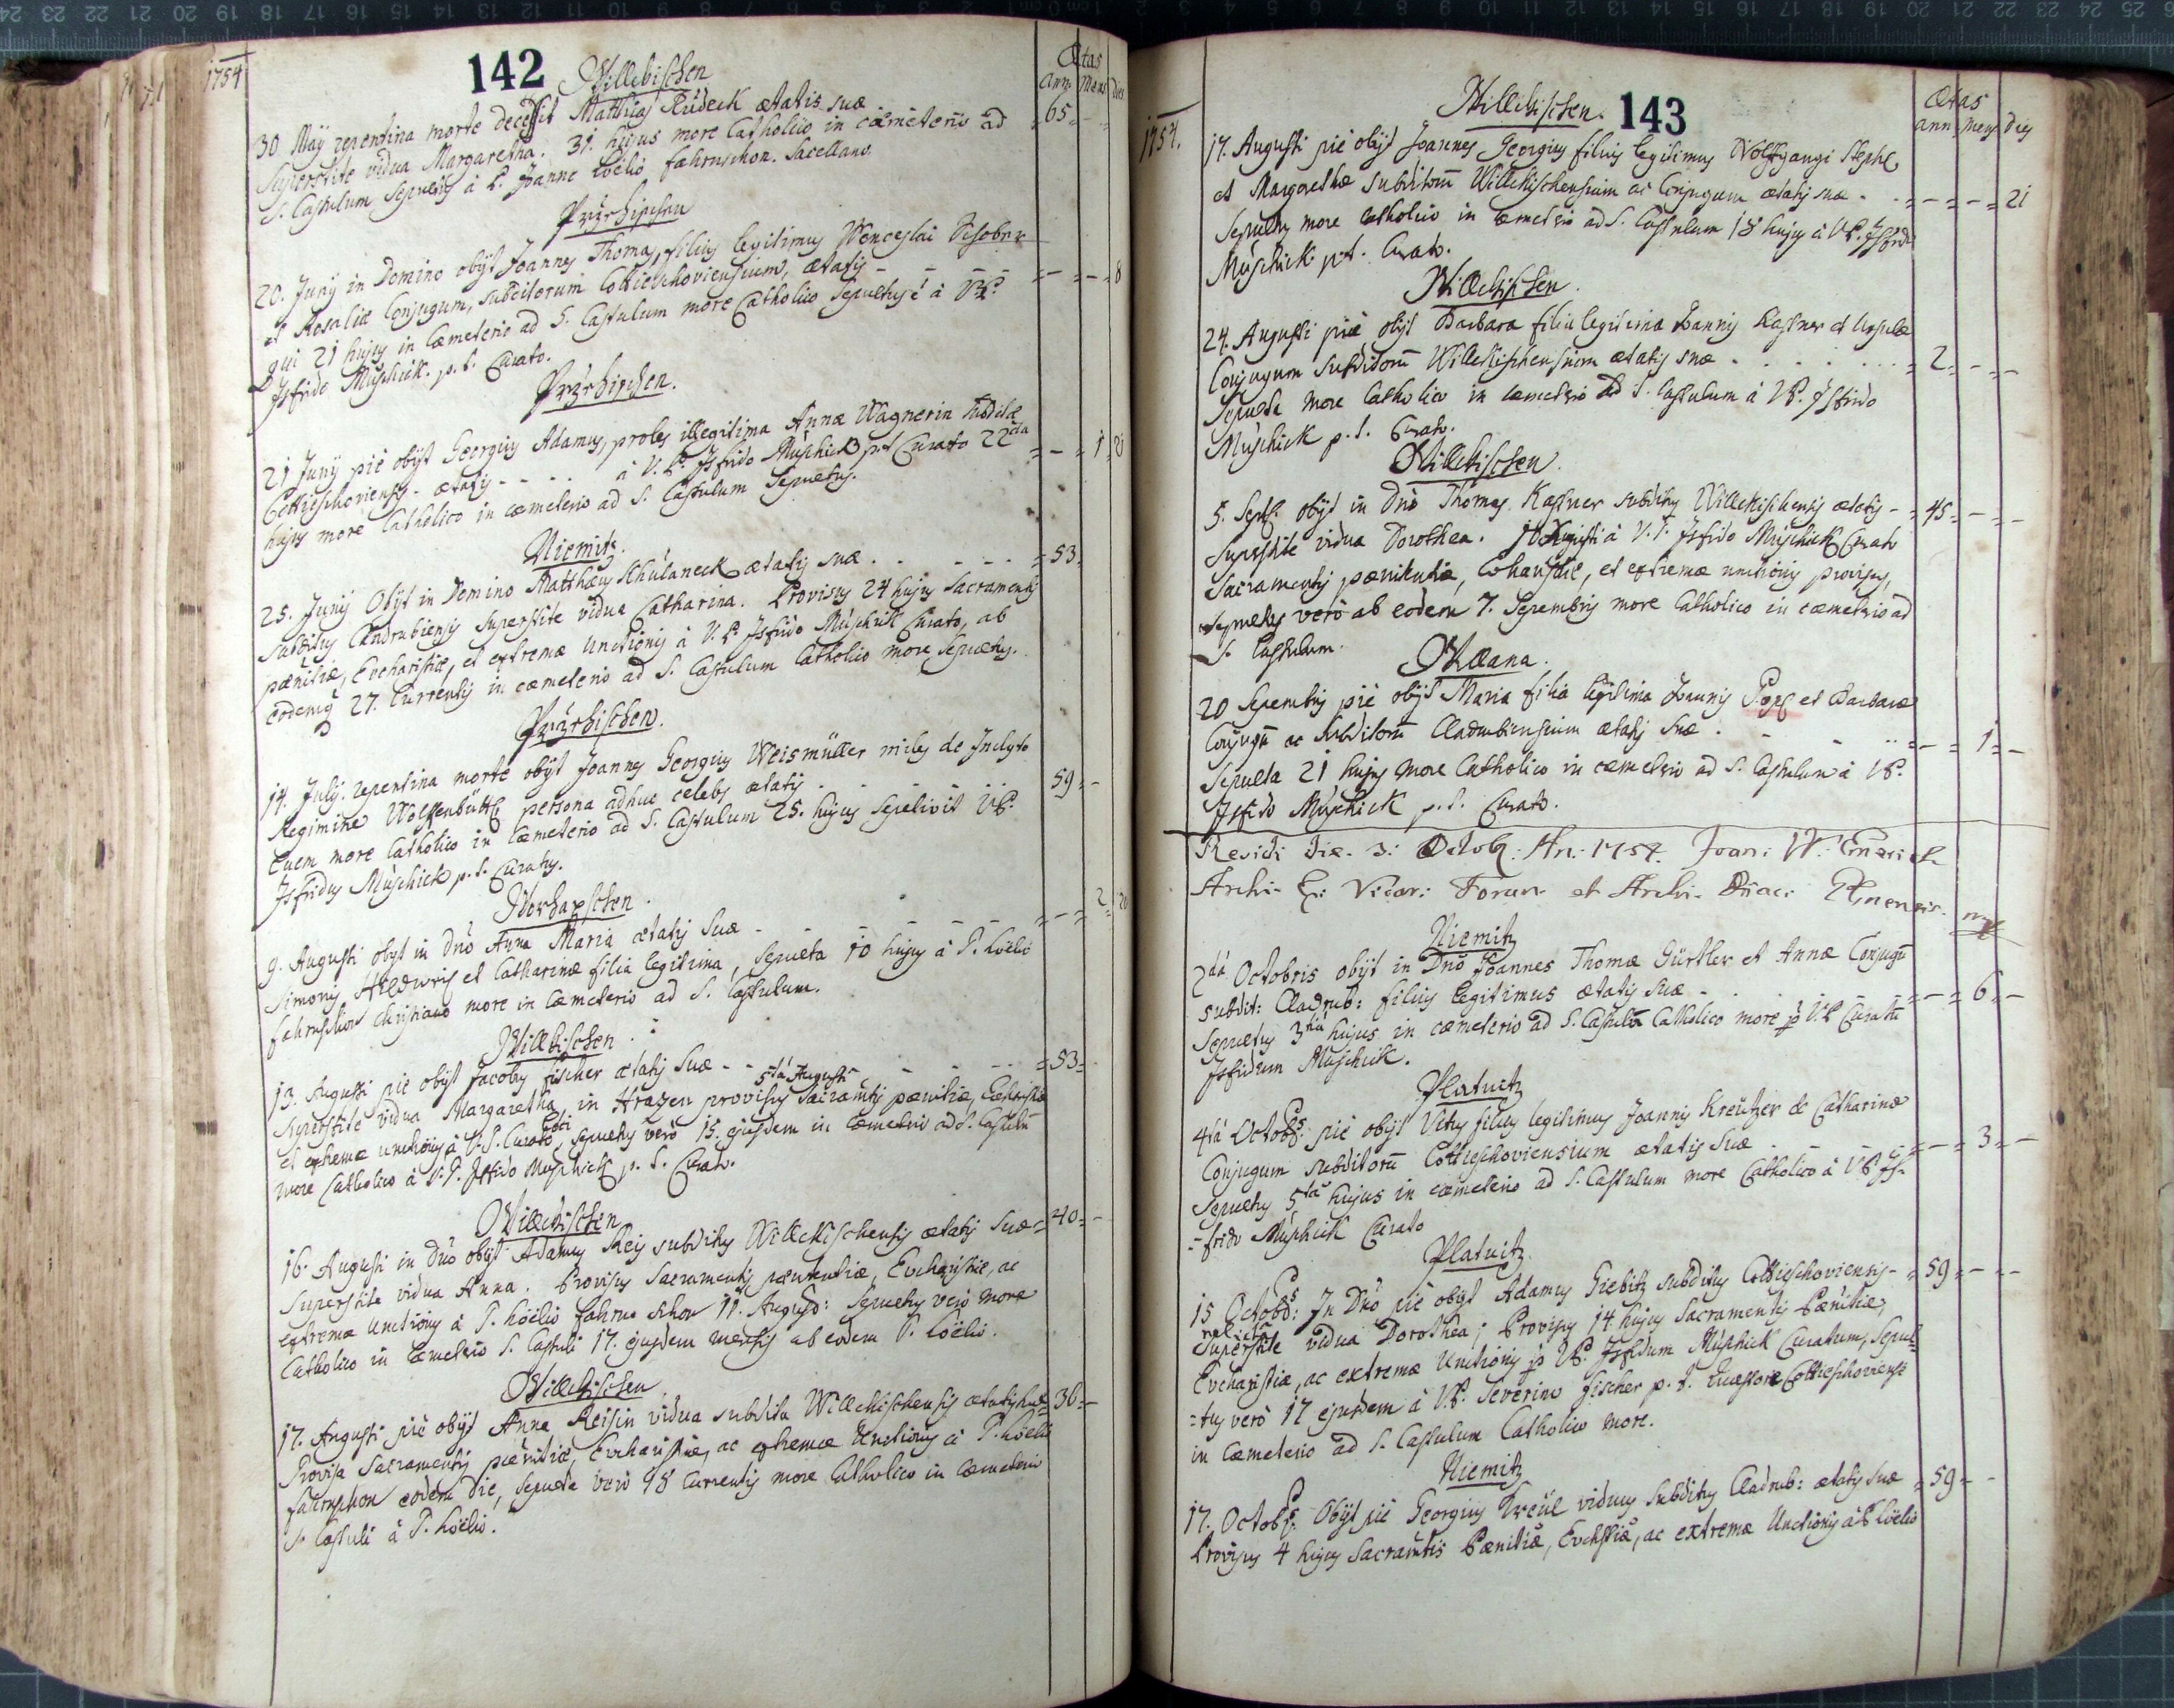 1754
142
Willebischen
Ætas
ann Mens dies
30 Maÿ repentina morte decessit Matthias Rüdeck ætatis suæ 65
Superstite vidua Margaretha. 31. hujus more Catholico in cœmeterio ad
S. Castulum Sepultus à P. Joanne Loëlio Sacellano.
20. Junÿ in Domino obÿt Joannes Thomas, filius legitimus Wenceslai
et Rosaliæ Conjugum, subditorum Cottieschoviensium, ætatis - - - - 8
qui 21 hujus in Cœmeterio ad S. Castulum more Catholico Sepultus è à VP.
Isfrido Müschick. p. t. Curato.
21 Junÿ piè obÿt Georgius Adamus, proles illegitima Annæ Wagnerin subditæ
Cottieschoviensis - ætatis - - - - à V. P. Isfrido Müschick p t Curato 22da 1 8
hujus more Catholico in cœmeterio ad S. Castulum Sepultus.
Niemitz.
25. Junÿ Obÿt in Domino Matthæus ætatis suæ 53
subditus Cladrubiensis superstite vidua Catharina. Provisus 24 hujus Sacramentis
pœnitiæ, Eucharistiæ, et extremæ Unctionis à V. P. Isfrido Müschick Curato, ab
eodemq 27. Currentis in cœmeterio ad S. Castulum Catholico more Sepultus.
14. Julÿ. repentina morte obÿt Joannes Georgius Weismüller miles de Inclyto
Regimine Wolffenbüttl persona adhuc celebs ætatis 59
Quem more Catholico in Cœmeterio ad S. Castulum 25. hujus Sepelivit VP.
Isfridus Müschick p. t. Curatus.
9. Augusti obÿt in Dnō Anna Maria ætatis Suæ - - - - 2 20
Simonis et Catharinæ filia legitima, Sepulta 10 hujus à P. Loëlio
Christiano more in Cœmeterio ad S. Castulum.
Willkischen.
13. Augusti piè obÿt Jacobus Fischer ætatis suæ - - - - 53
5tâ Augusti
superstite vidua Margaretha, in provisus Sacramtis pœnitiæ, Eucharistiæ
et extremæ unctionis à V. P. Curato loci, sepultus verò 15. ejusdem in Cœmeterio ad S. Castulū
more Catholico à V. P. Isfrido Müschick p. t. Curato.
Willkischen
16. Augusti in Dnō obÿt Adamus Reis subditus Willckischensis ætatis suæ 40
Superstite vidua Anna. Provisus Sacramentis pœnitentiæ, Eucharistiæ, ac
extremæ Unctionis à P. Loëlio 11. Augusti: Sepultus verò more
Catholico in Cœmeterio S. Castuli 17. ejusdem mensis ab eodem P. Loëlio.
Willckischen
17. Augusti piè obÿt Anna Reisin vidua subdita Willckischensis ætatis suæ 36
Provisa Sacramentis pœnitiæ, Eucharistiæ, ac extremæ Unctionis à P. Loëlio
eodem die, Sepulta verò 18 Currentis more Catholico in Cœmeterio
S. Castuli à P. Loëlio.
1754.
143
Willckischen.
Ætas
ann Mens dies
17. Augusti piè obÿt Joannes Georgius filius legitimus Wolffgangi
et Margarethæ subditorū Willckischensium ac Conjugum ætatis suæ - - - 21
Sepultus more Catholico in Cœmeterio ad S. Castulum 18 hujus à VP. Isfrido
Müschick p. t. Curato.
Willckischen.
24. Augusti piè obÿt Barbara filia legitima Joannis Kastner et Ursulæ
Conjugum subditorū Willckischensium ætatis suæ 2
Sepulta more Catholico in Cœmeterio ad S. Castulum à VP. Isfrido
Müschick p. t. Curato.
Willckischen.
5. Septb obÿt in Dnō Thomas Kastner subditus Willckischensis ætatis - 45
Superstite vidua Dorothea. Augusti à V. P. Isfrido Müschick Curato
Sacramentis pœnitentiæ, Eucharistiæ, et extremæ unctionis provisus,
sepultus verò ab eodem 7. Septembris more Catholico in cœmeterio ad
S. Castulum.
20 Septembris piè obÿt Maria filia legitima Joannis Popl et Barbaræ
Conjugū ac subditorū Cladrubiensium ætatis suæ 1
Sepulta 21 hujus more Catholico in cœmeterio ad S. Castulum à VP.
Isfrido Müschick p. t. Curato.
Revidi Die. 3: Octob: An: 1754. Joan: W:
Archi- Vicar: Foran: et Archi- Diac:
Niemitz
2dâ Octobris obÿt in Dnō Joannes Thomæ Gürtler et Annæ Conjugū
subdit: Cladrub: filius legitimus ætatis suæ - 6
Sepultus 3tiâ hujus in cœmeterio ad S. Castulū Catholico more p V. P Curatū
Isfridum Müschick.
Platnitz
4tâ Octobs. piè obÿt Vitus filius legitimus Joannis Kreützer & Catharinæ
Conjugum subditorū Cottieschoviensium ætatis suæ - - - 3
Sepultus 5tâ hujus in cœmeterio ad S. Castulum more Catholico à VP Is-
=frido Müschick Curato
Platnitz.
15 Octobs: In Dnō piè obÿt Adamus Siebitz subditus Cottieschoviensis - 59
relictâ
superstite vidua Dorothea; Provisus 14 hujus Sacramentis Pœnitiæ,
Eucharistiæ, ac extremæ Unctionis p VP. Isfridum Müschick Curatum, Sepul=
=tus verò 17 ejusdem à V. P. Severino Fischer p. t. Quæstore Cottieschoviense
in Cœmeterio ad S. Castulum Catholico more.
Niemitz
17. Octobs. Obÿt piè Georgius viduus subditus Cladrub: ætatis suæ 59
Provisus 4 hujus Sacramtis Pœnitiæ, Euchstiæ, ac extremæ Unctionis à P Loëlio